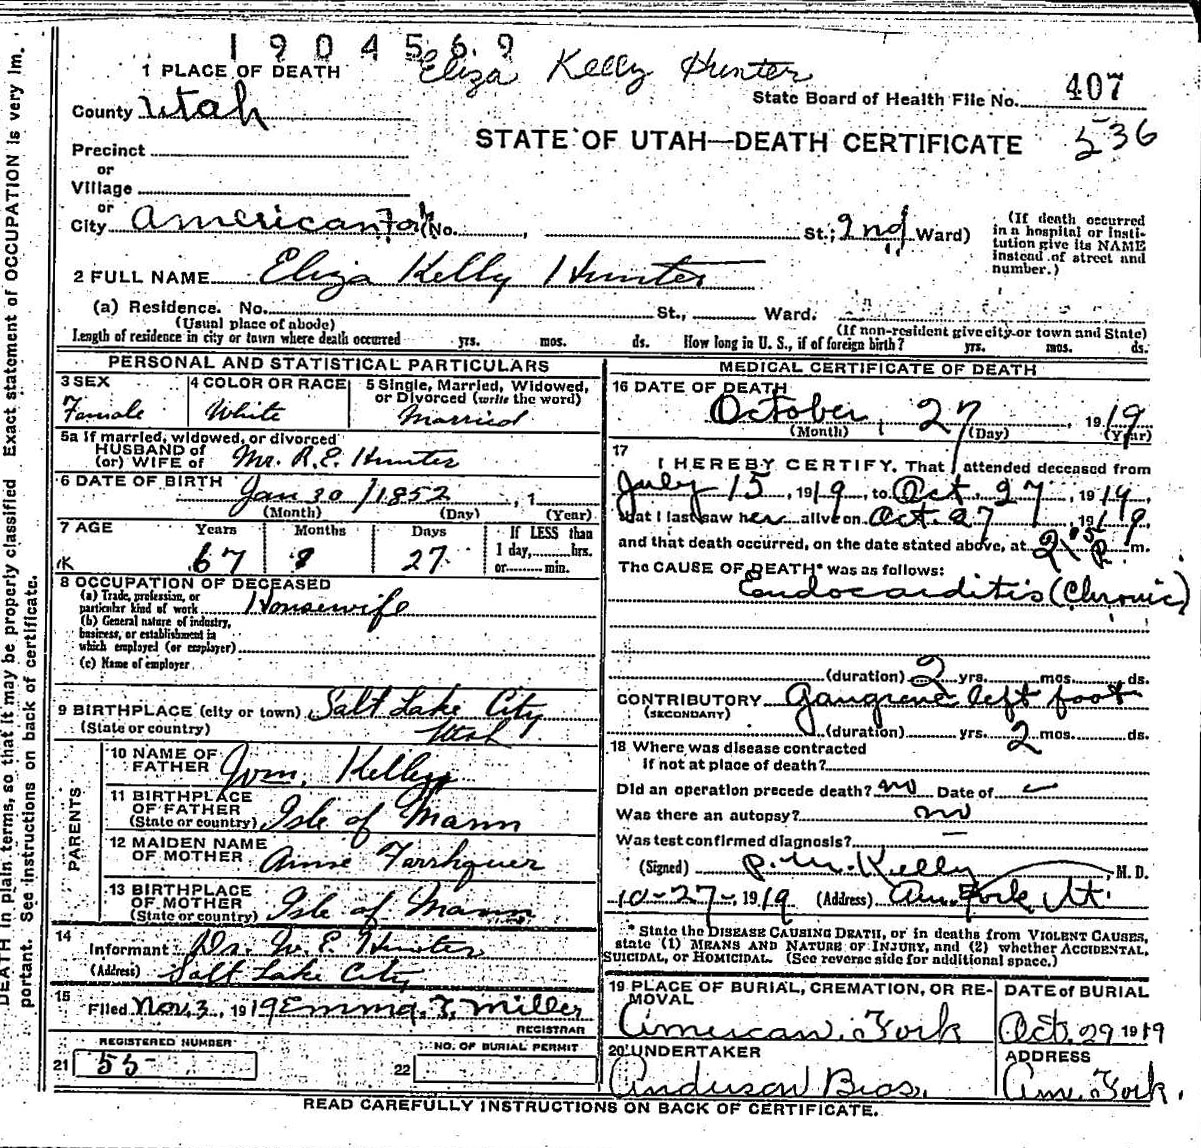 1904569
Eliza Kelly Hunter
1 PLACE OF DEATH
State Board of Health File No. 407
County Utah
STATE OF UTAH—DEATH CERTIFICATE 536
Precinct
or
Village
or
City American Fork No. , St.; 2nd Ward)
(If death occurred in a hospital or Insti-
tution give its NAME
instead of street and
number.)
2 FULL NAME Eliza Kelly Hunter
(a) Residence. No. St., Ward.
(Usual place of abode) (If non-resident give city or town and State)
Length of residence in city or town where death occurred yrs. mos. ds. How long in U. S., if of foreign birth? yrs. mos. ds.
PERSONAL AND STATISTICAL PARTICULARS
3 SEX Female
4 COLOR OR RACE White
5 Single, Married, Widowed,
or Divorced (write the word)
Married
5a If married, widowed, or divorced
HUSBAND of
(or) WIFE of Mr. R.E. Hunter
6 DATE OF BIRTH Jan 30 1852 , 1
(Month) (Day) (Year)
7 AGE Years Months Days If LESS than
1 day, hrs.
or min.
67 8 27
8 OCCUPATION OF DECEASED
(a) Trade, profession, or
particular kind of work Housewife
(b) General nature of industry,
business, or establishment in
which employed (or employer)
(c) Name of employer
9 BIRTHPLACE (city or town) Salt Lake City
(State or country) Utah
PARENTS
10 NAME OF
FATHER Wm. Kelly
11 BIRTHPLACE
OF FATHER
(State or country) Isle of Mann
12 MAIDEN NAME
OF MOTHER
13 BIRTHPLACE
OF MOTHER
(State or country) Isle of Mann
14
Informant Dr. W. E. Hunter
(Address) Salt Lake City
15
Filed Nov. 3, 1919 Emma F. Miller
REGISTRAR
REGISTERED NUMBER
21 55
NO. OF BURIAL PERMIT
22
MEDICAL CERTIFICATE OF DEATH
16 DATE OF DEATH
October 27, 1919
(Month) (Day) (Year)
17
I HEREBY CERTIFY, That I attended deceased from
July 15, 1919, to Oct. 27, 1919,
that I last saw her alive on Oct. 27 1919
and that death occurred, on the date stated above, at P. m.
The CAUSE OF DEATH* was as follows:
Endocarditis (Chronic)
(duration) 2 yrs. mos. ds.
CONTRIBUTORY Gangrene left foot
(SECONDARY)
(duration) yrs. 2 mos. ds.
18 Where was disease contracted
if not at place of death?
Did an operation precede death? no Date of
Was there an autopsy? no
Was test confirmed diagnosis?
(Signed) P. M. Kelly M. D.
10-27-, 1919 (Address) Am. Fork Ut.
* State the DISEASE CAUSING DEATH, or in deaths from VIOLENT CAUSES,
state (1) MEANS AND NATURE OF INJURY, and (2) whether ACCIDENTAL,
SUICIDAL, or HOMICIDAL. (See reverse side for additional space.)
19 PLACE OF BURIAL, CREMATION, OR RE-
MOVAL
American Fork
DATE of BURIAL
Oct. 29 1919
20 UNDERTAKER
Anderson Bros.
ADDRESS
Am. Fork.
READ CAREFULLY INSTRUCTIONS ON BACK OF CERTIFICATE.
DEATH in plain terms, so that it may be properly classified. Exact statement of OCCUPATION is very im-
portant. See instructions on back of certificate.